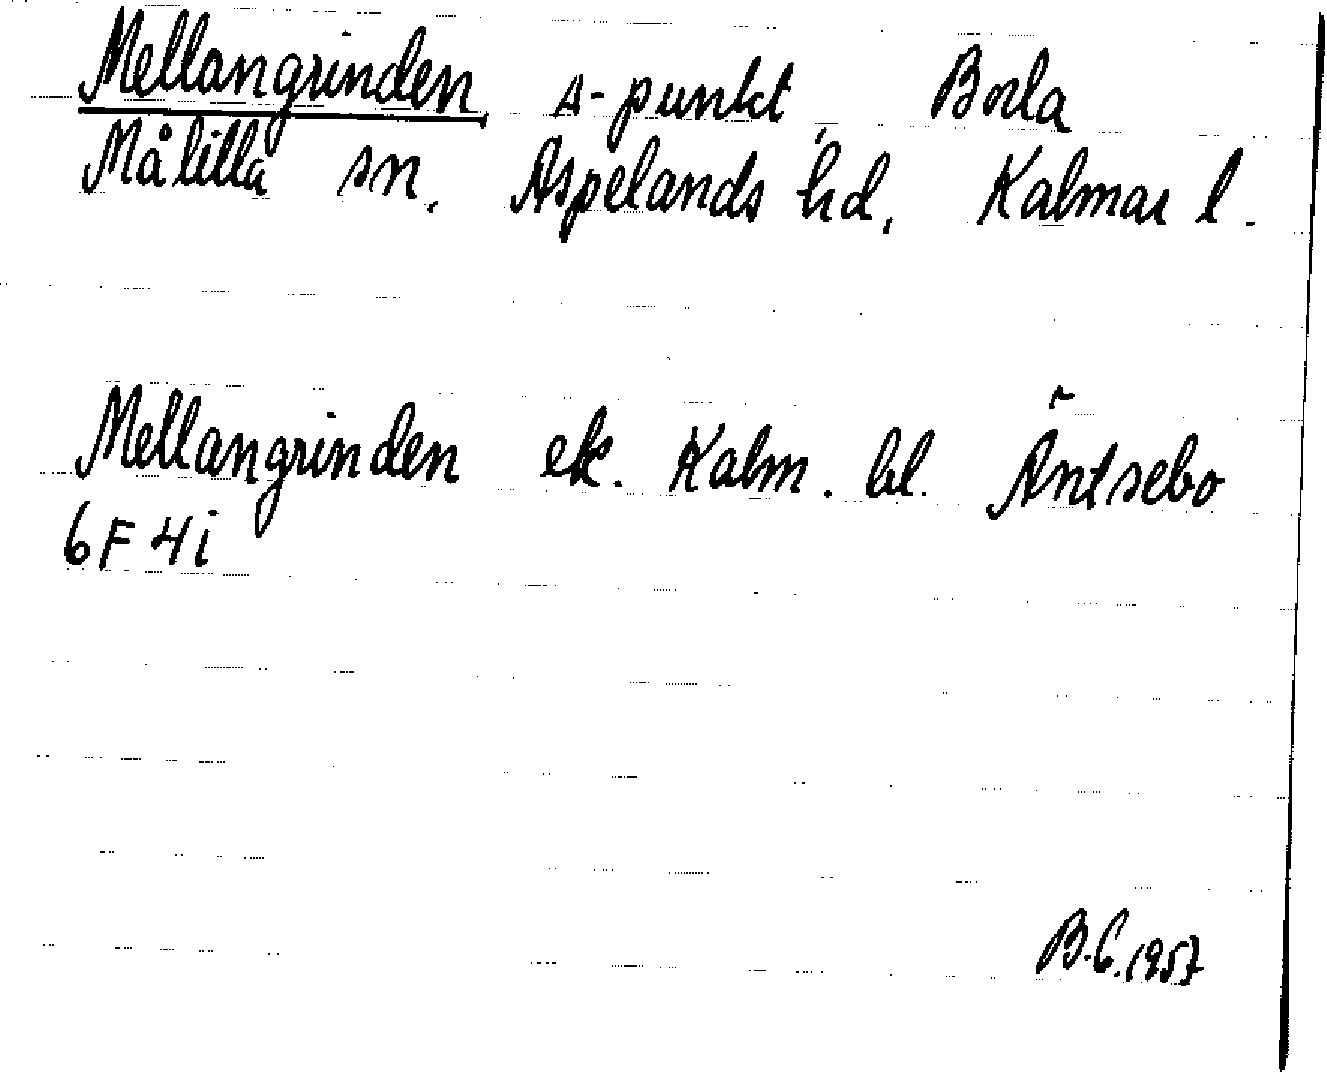 Mellangrinden Δ-punkt, Borla
Målilla sn. Aspelands hd, Kalmar l.
Mellangrinden ek. Kalm. bl. Äntsebo
6F 4i
B.C. 1957